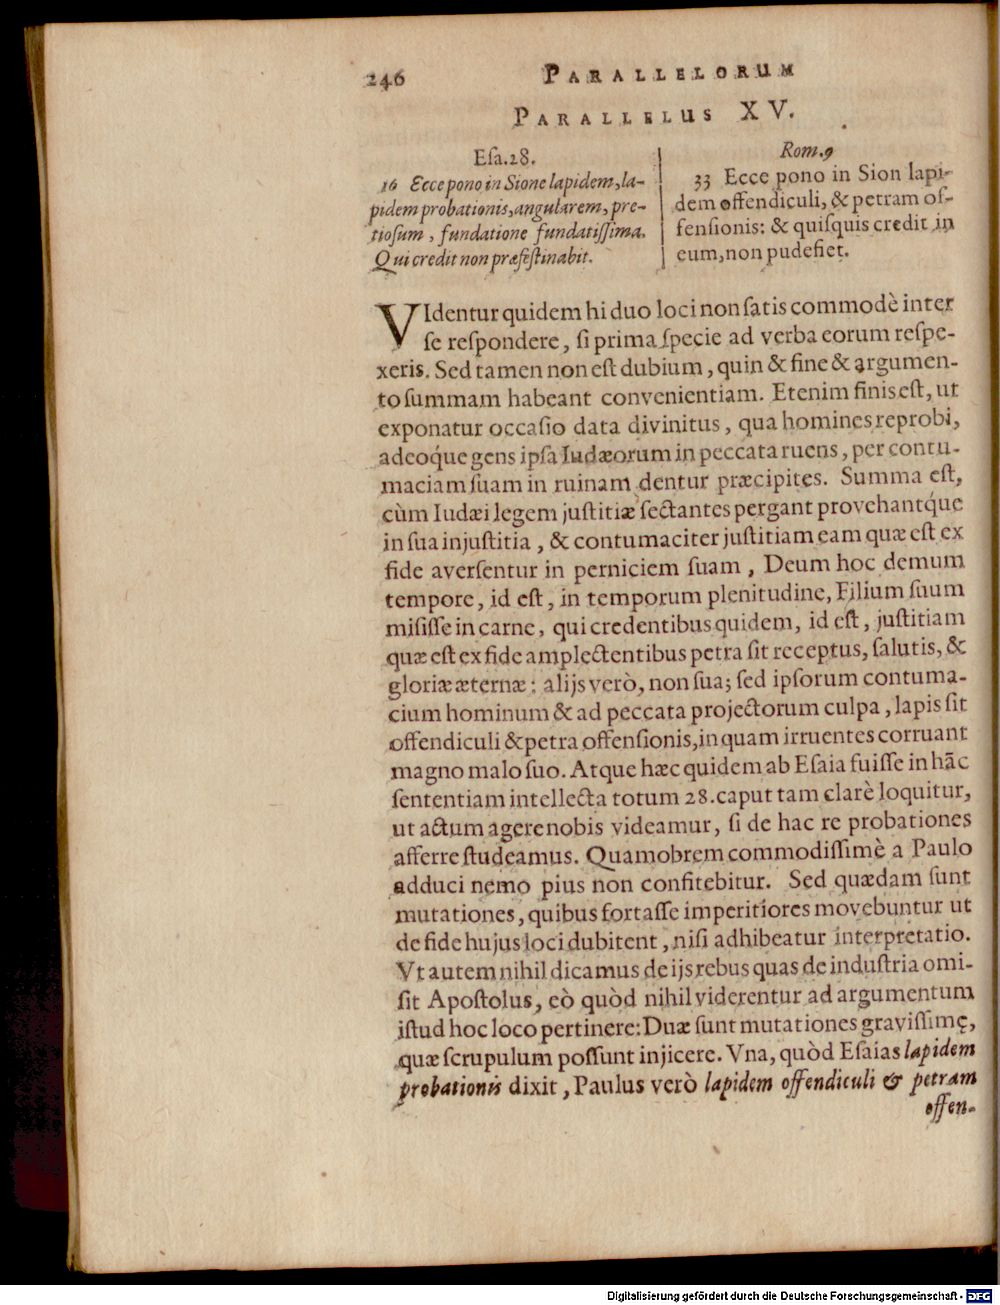 246 PARALLELORUM
PARALLELUS XV.
Eſa.28.
16 Ecce pono in Sione lapidem, la-
pidem probationis, angularem, pre-
tioſum, fundatione fundatiſſima.
Qui credit non præfeſtinabit.
Rom.9
33 Ecce pono in Sion lapi-
dem offendiculi, & petram of-
fenſionis: & quiſquis credit in
eum, non pudefiet.
VIdentur quidem hi duo loci non ſatis commodè inter
ſe reſpondere, ſi prima ſpecie ad verba eorum reſpe-
xeris. Sed tamen non eſt dubium, quin & fine & argumen-
to ſummam habeant convenientiam. Etenim finis eſt, ut
exponatur occaſio data divinitus, qua homines reprobi,
adeoq́ue gens ipſa Iudæorum in peccata ruens, per contu-
maciam ſuam in ruinam dentur præcipites. Summa eſt,
cùm Iudæi legem juſtitiæ ſectantes pergant provehantq́ue
in ſua injuſtitia, & contumaciter juſtitiam eam quæ eſt ex
fide averſentur in perniciem ſuam, Deum hoc demum
tempore, id eſt, in temporum plenitudine, Filium ſuum
miſiſſe in carne, qui credentibus quidem, id eſt, juſtitiam
quæ eſt ex fide amplectentibus petra ſit receptus, ſalutis, &
gloriæ æternæ: alijs verò, non ſua; ſed ipſorum contuma-
cium hominum & ad peccata projectorum culpa, lapis ſit
offendiculi & petra offenſionis, in quam irruentes corruant
magno malo ſuo. Atque hæc quidem ab Eſaia fuiſſe in hãc
ſententiam intellecta totum 28. caput tam clarè loquitur,
ut actum agere nobis videamur, ſi de hac re probationes
afferre ſtudeamus. Quamobrem commodiſſimè a Paulo
adduci nemo pius non confitebitur. Sed quædam ſunt
mutationes, quibus fortaſſe imperitiores movebuntur ut
de fide hujus loci dubitent, niſi adhibeatur interpretatio.
Vt autem nihil dicamus de ijs rebus quas de induſtria omi-
ſit Apoſtolus, eò quòd nihil viderentur ad argumentum
iſtud hoc loco pertinere: Duæ ſunt mutationes graviſſimę,
quæ ſcrupulum poſſunt injicere. Vna, quòd Eſaias lapidem
probationis dixit, Paulus verò lapidem offendiculi & petram
offen-
Digitalisierung gefördert durch die Deutsche Forschungsgemeinschaft - DFG